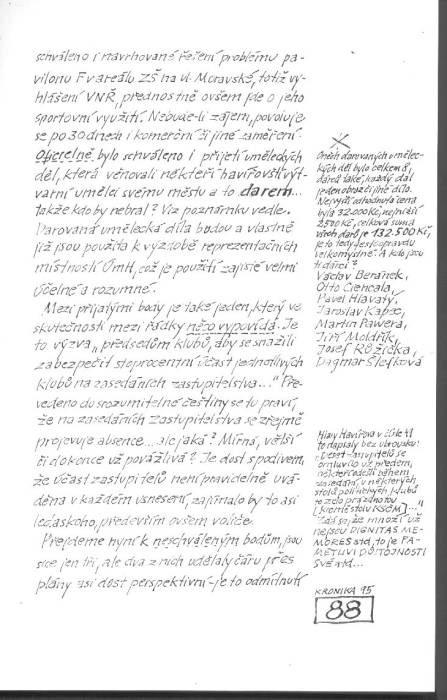 schváleno i navrhované řešení problému pa-
vilonu F v areálu ZŠ na ul. Moravské, totiž vy-
hlášení VNŘ, přednostně ovšem jde o jeho
sportovní využití. Nebude-li zájem, povoluje
se po 30 dnech i komerční či jiné zaměření.
Obšírně bylo schváleno i přijetí uměleckých
děl, která věnovali někteří havířovští vý-
tvarní umělci svému městu a to darem...
takže kdo by nebral? Viz poznámku vedle.
Darovaná umělecká díla budou a vlastně
již jsou použita k výzdobě reprezentačních
místností ÚmH, což je použití zajisté velmi
účelné a rozumné.
Mezi přijatými body je také jeden, který ve
skutečnosti mezi řádky něco vypovídá. Je
to výzva „předsedům klubů, aby se snažili
zabezpečit stoprocentní účast jednotlivých
klubů na zasedáních zastupitelstva..." Pře-
vedeno do srozumitelné češtiny se tu praví,
že na zasedáních zastupitelstva se zřejmě
projevuje absence... ale jaká? Mírná, větší
či dokonce už povážlivá? Je dost s podivem,
že účast zastupitelů není pravidelně uvá-
děna v každém usnesení, zajímalo by to asi
leckoho, především ovšem voliče.
Přejdeme nyní k neschváleným bodům, jsou
sice jen tři, ale dva z nich udělaly čáru přes
plány asi dost perspektivní - je to odmítnutí
X
Oněch darovaných umělec-
kých děl bylo celkem 8,
dárců také, každý dal
jeden obraz či jiné dílo.
Nejvyšší odhadnutá cena
byla 32.000 Kč, nejnižší
2500 Kč, celková suma
všech darů je 132.500 Kč,
je to tedy jeskoopravdu
velkomyslné. A kdo jsou
ti dárci?
Václav Beránek,
Otto Ciencala,
Pavel Hlavatý,
Jaroslav Kapec,
Martin Pawera,
Jiří Moldřík,
Josef Růžička,
Dagmar Šlefková
Hlasy Havířova v čísle 41
to napsaly bez ubrousku:
"Deset zastupitelů se
omluvilo už předem,
někteří odešli během
zasedání, u některých
stolů politických klubů
je zelo prázdnotou
[kromě stolu KSČM]..."
Zdá se, že mnozí už
nejsou DIGNITAS ME-
MORES atd., to je PA-
MĚTLIVI DŮSTOJNOSTI
SVÉ atd...
KRONIKA 95
88